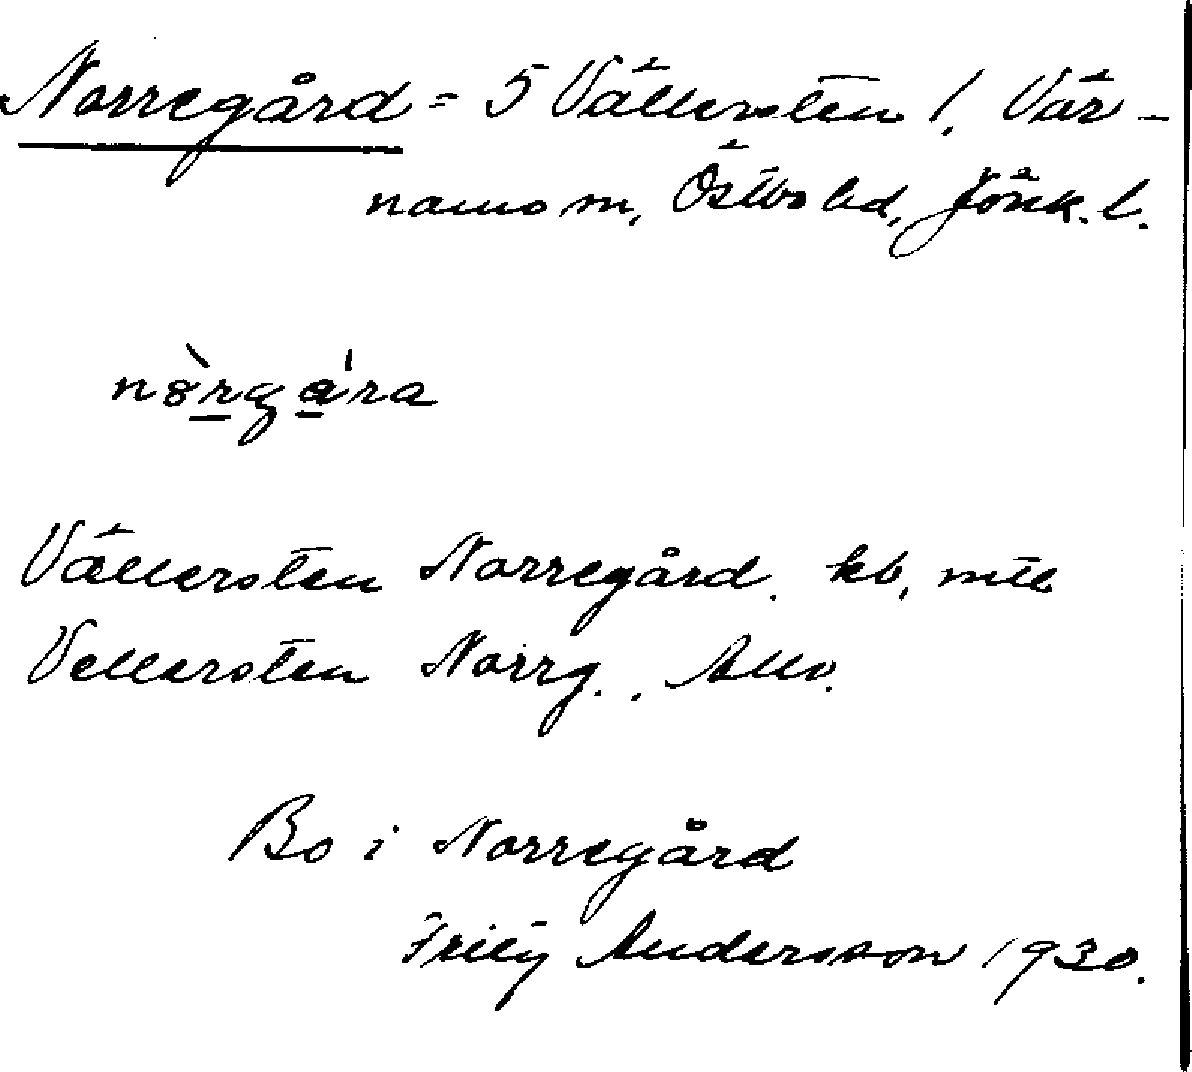 Norregård = 5 Vällersten 1, Vär-
namo sn, Östbo hd, Jönk. l.
Vällersten Norregård. kb, mtl
Vellersten Norrg.
Bo i Norregård
Andersson 1930.